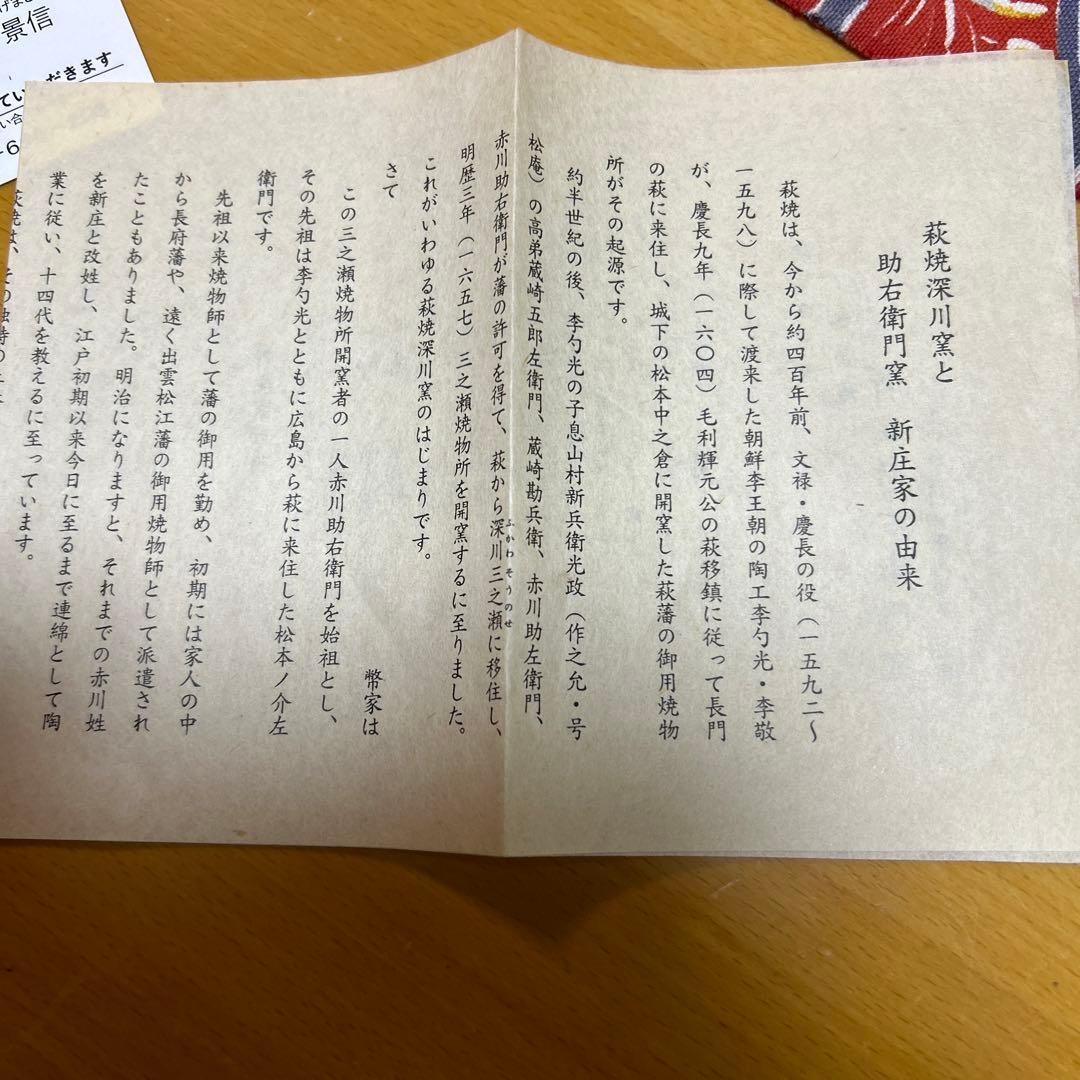 萩焼深川窯と
助右衛門窯　新庄家の由来
萩焼は、今から約四百年前、文禄・慶長の役（一五九二～
一五九八）に際して渡来した朝鮮李王朝の陶工李勺光・李敬
が、慶長九年（一六〇四）毛利輝元公の萩移鎮に従って長門
の萩に来住し、城下の松本中之倉に開窯した萩藩の御用焼物
所がその起源です。
約半世紀の後、李勺光の子息山村新兵衛光政（作之允・号
松庵）の高弟蔵崎五郎左衛門、蔵崎勘兵衛、赤川助左衛門、
赤川助右衛門が藩の許可を得て、萩から深川三之瀬に移住し、
ふかわそうのせ
明歴三年（一六五七）三之瀬焼物所を開窯するに至りました。
これがいわゆる萩焼深川窯のはじまりです。
さて
幣家は
この三之瀬焼物所開窯者の一人赤川助右衛門を始祖とし、
その先祖は李勺光とともに広島から萩に来住した松本ノ介左
衛門です。
先祖以来焼物師として藩の御用を勤め、初期には家人の中
から長府藩や、遠く出雲松江藩の御用焼物師として派遣され
たこともありました。明治になりますと、それまでの赤川姓
を新庄と改姓し、江戸初期以来今日に至るまで連綿として陶
業に従い、十四代を教えるに至っています。
萩焼は、その独特の
景信
だきます